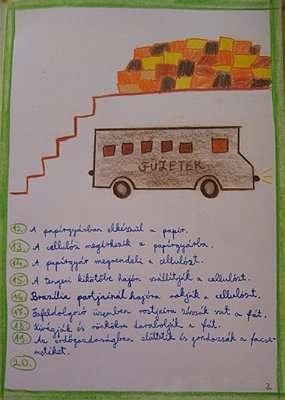 FÜZETEK
12. A papírgyárban elkészül a papír.
13. A cellulóz megérkezik a papírgyárba.
14. A papírgyár megrendeli a cellulózt.
15. A tengeri kikötőbe hajón szállítják a cellulózt.
16. Brazília partjainál hajóra rakják a cellulózt.
17. Fafeldolgozó üzemben rostjaira zúzzák szét a fát.
18. Kivágják és rönkökre darabolják a fát.
19. Az erdőgazdaságban ültetik és gondozzák a facse-
metéket.
20.
2